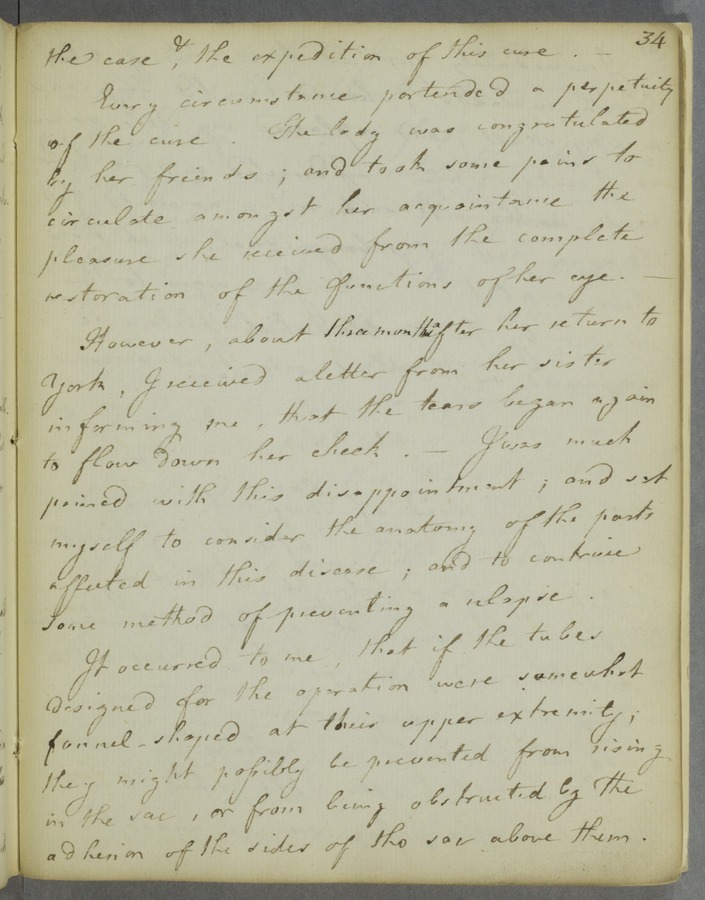 34
the case & the expedition of this cure . —
Every circumstance portended a perpetuity
of the cure . The lady was congratulated
by her friends ; and took some pains to
circulate amongst her acquaintance the
pleasure she received from the complete
restoration of the functions of her eye . —
However , about three months after her return to
York , I received a letter from her sister
informing me , that the tears began again
to flow down her cheek . — I was much
pained with this disappointment ; and set
myself to consider the anatomy of the parts
affected in this disease ; and to contrive
some method of preventing a relapse .
It occurred to me , that if the tubes
designed for the operation were somewhat
funnel-shaped at their upper extremity ;
they might possibly be prevented from rising
in the sac , or from being obstructed by the
adhesion of the sides of the sac above them .